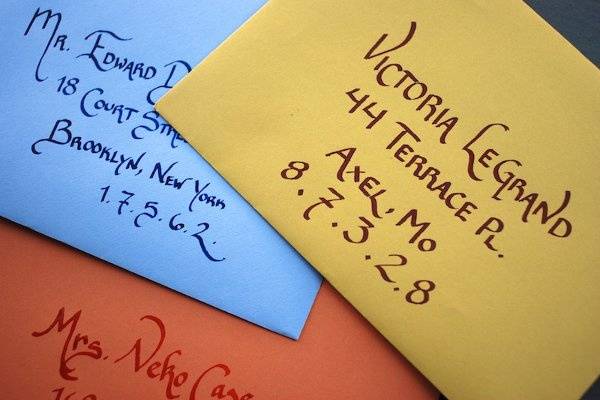 Mr. Edward
18 Court
Brooklyn, New York
1.7.5.6.2.
Victoria LeGrand
44 Terrace Pl.
Axel, Mo
8.7.3.2.8
Mrs. Neko Case